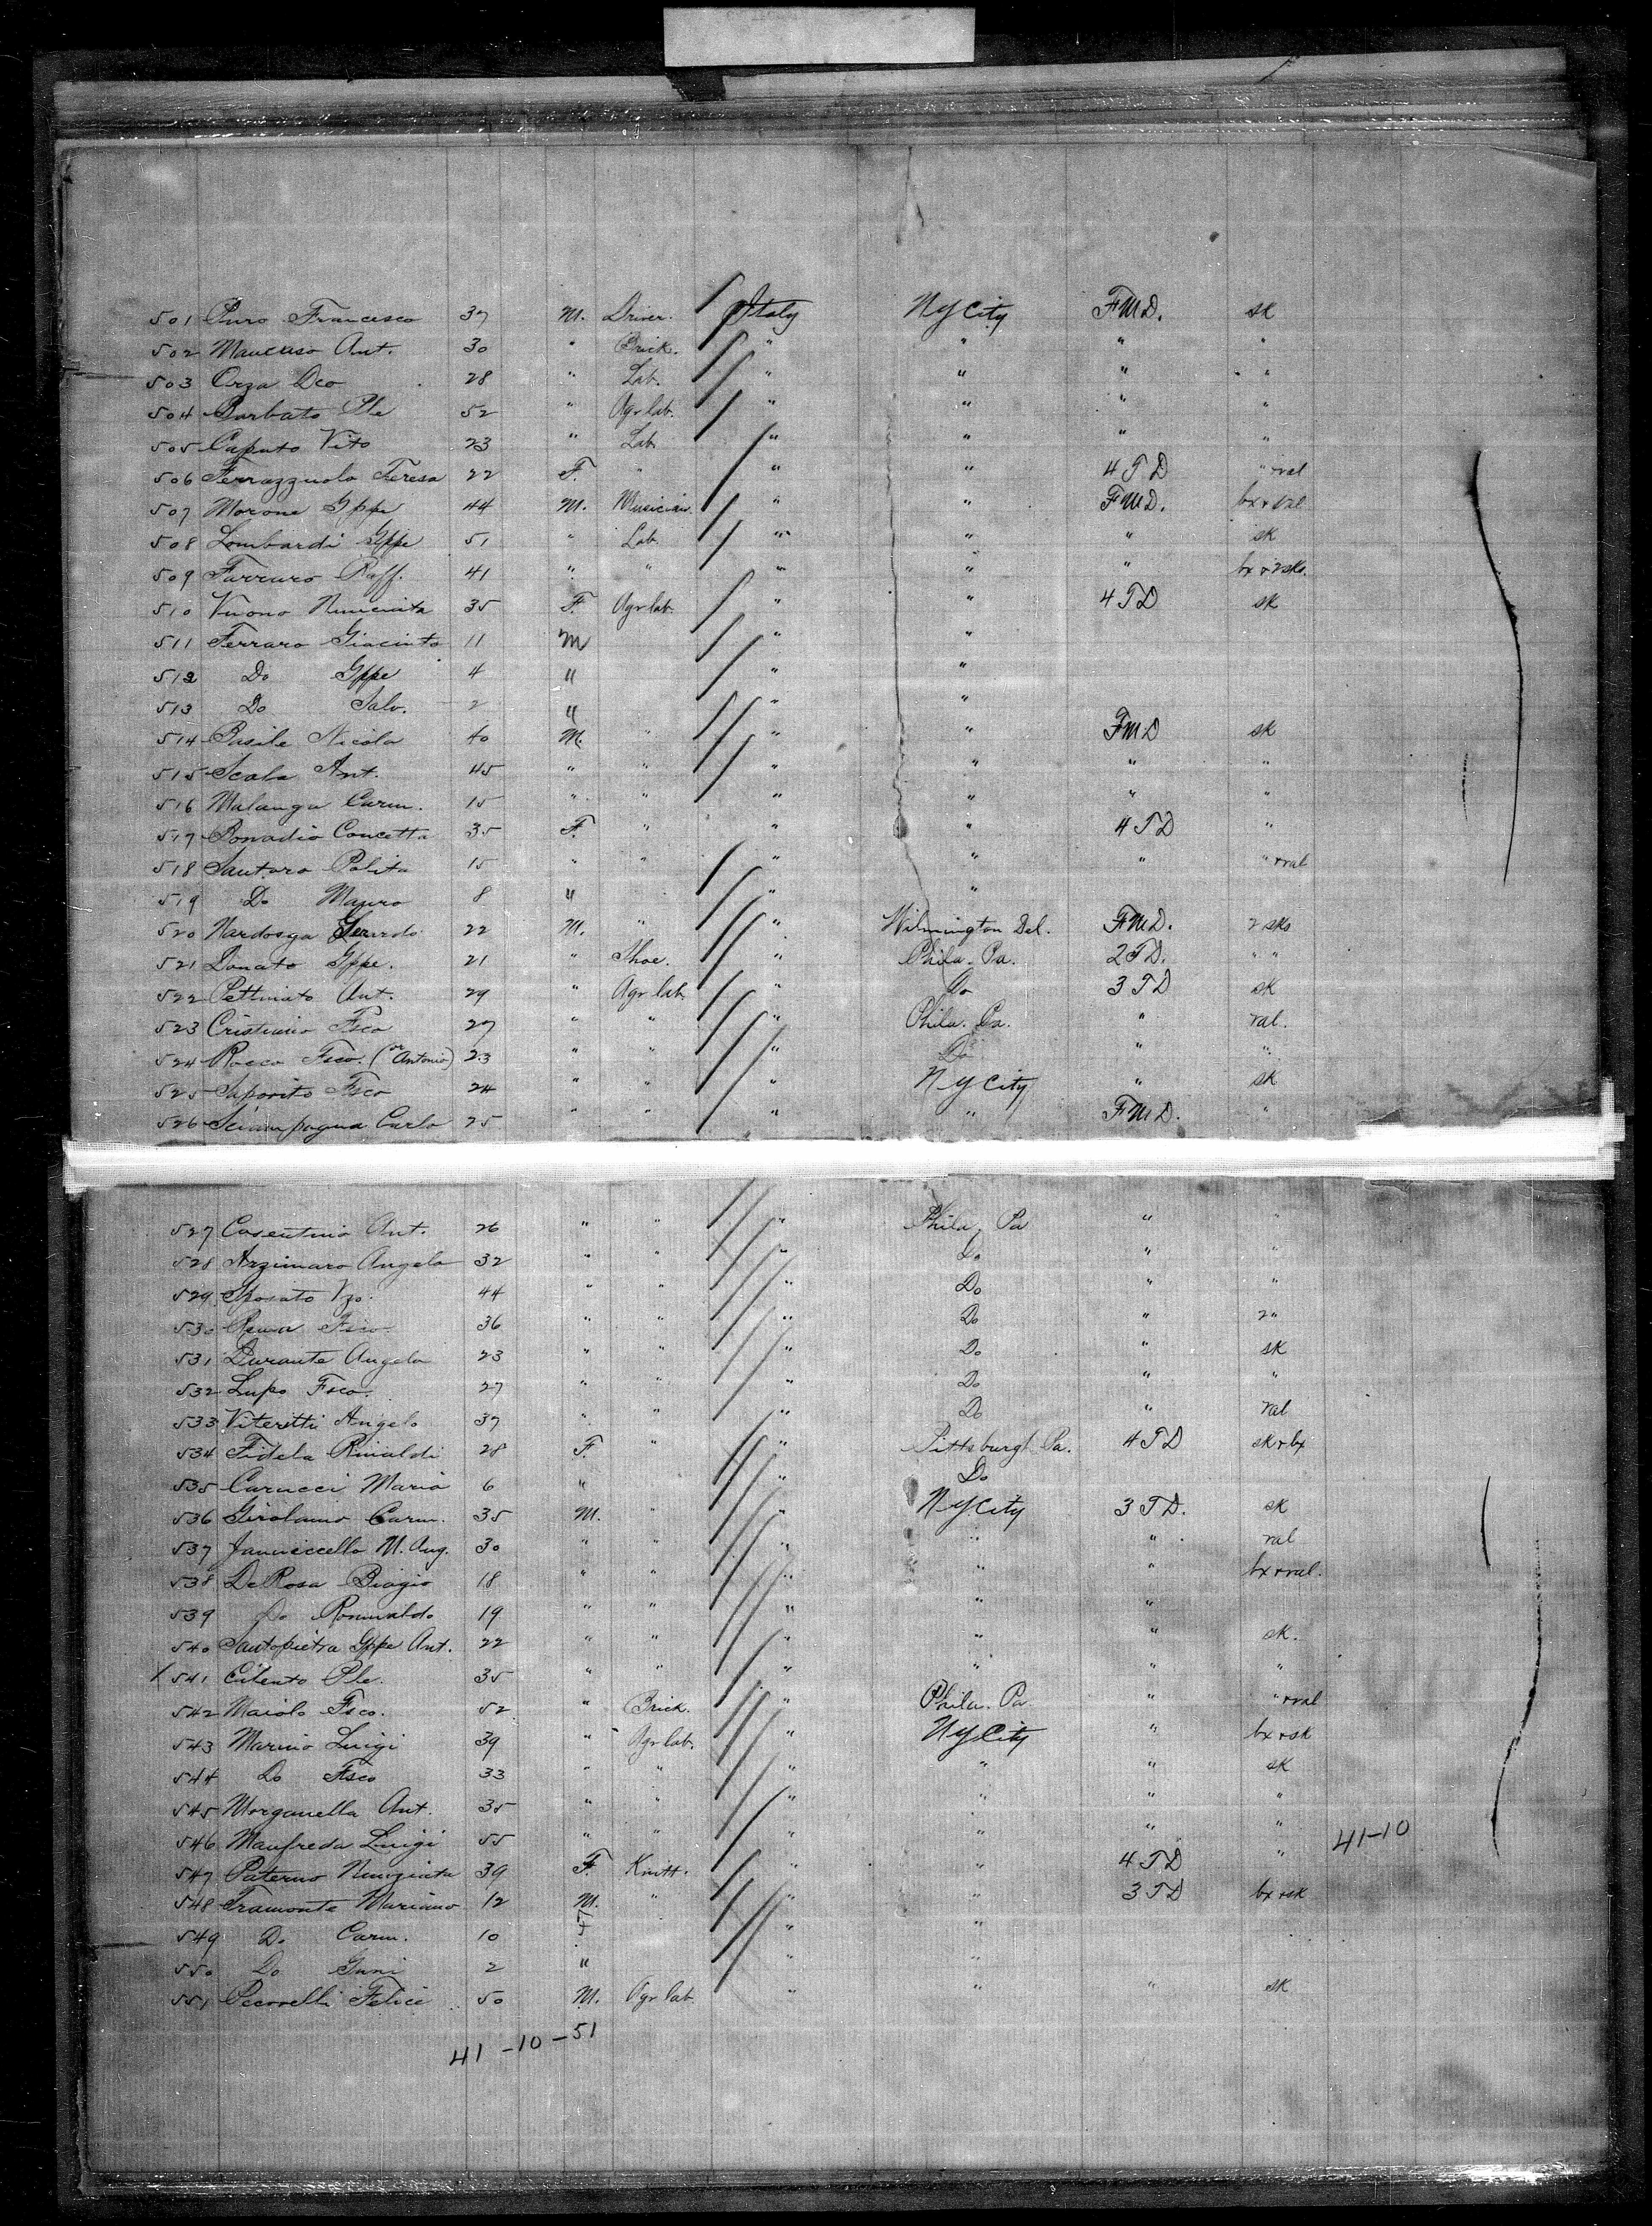 501 Puro Francesco 37 M. Driver. Italy NY City FMD. sk
502 Mancuso Ant. 30 " Brick. " " " "
503 Orza Dco 28 " Lab. " " " "
504 Barbato Ple 52 " Agr lab. " " " "
505 Caputo Vito 23 " Lab. " " " "
506 Ferrazzuolo Teresa 22 F. " " " 4 TD " + val
507 Morone Gppe 44 M. Musician. " " FMD. bx + val
508 Lombardi Gppe 51 " Lab " " " sk
509 Farraro Raff. 41 " " " " " bx + 2 sks.
510 Vuono Nunciata 35 F. Agr lab. " " 4 TD sk
511 Ferraro Giacinto 11 M " "
512 Do Gppe 4 " " "
513 Do Salv. 2 " " "
514 Basile Nicola 40 M. " " " FMD sk
515 Scala Ant. 45 " " " " " "
516 Malanga Carm. 15 " " " " " "
517 Bonadio Concetta 35 F. " " " 4 TD "
518 Santoro Polita 15 " " " " " " + val
519 Do Mauro 8 " " "
520 Gerardo 22 M. " " Wilmington Del. FMD. 2 sks
521 Donato Gppe. 21 " Shoe. " Phila. Pa. 2 TD. " "
522 Pettinato Ant. 29 " Agr lab " Do 3 TD sk
523 Cristiano Fsco 27 " " " Phila. Pa. " val.
524 Rocco Fsco. (or Antonio) 23 " " " Do " "
525 Saporito Fsco 24 " " " NY City " sk
526 Sciampagna Carlo 25 " " " " FMD. "
527 Cosentino Ant. 26 " " " Phila. Pa " "
528 Arzimaro Angelo 32 " " " Do " "
529 Sposato Vzo. 44 " " " Do " "
530 Fsco. 36 " " " Do " 2 "
531 Durante Angelo 23 " " " Do " sk
532 Lupo Fsco. 27 " " " Do " "
533 Viteritti Angelo 37 " " " Do " val
534 Fidela Rinaldi 28 F. " " Pittsburgh Pa. 4 TD sk + bx
535 Carucci Maria 6 " " Do
536 Girolamo Carm. 35 M. " " NY City 3 TD. sk
537 Jannuccello M. Ang. 30 " " " " " val
538 De Rosa Biagio 18 " " " " " bx + val.
539 Do Romualdo 19 " " " " "
540 Santopietra Gppe Ant. 22 " " " " " sk.
X 541 Cilento Ple. 35 " " " " " "
542 Maiolo Fsco. 52 " Brick. " Phila. Pa " " + val
543 Marino Luigi 39 " Agr lab. " NY City " bx + sk
544 Do Fsco 33 " " " " " sk
545 Morganella Ant. 35 " " " " " "
546 Manfreda Luigi 55 " " " " " " 41-10
547 Paterno Nunziata 39 F. Knitt. " " 4 TD "
548 Tramonte Mariano 12 M. " " " 3 TD bx + sk
549 Do Carm. 10 F. " "
550 Do 2 " " "
551 Pecorelli Felice 50 M. Agr lab. " " " sk
41-10-51